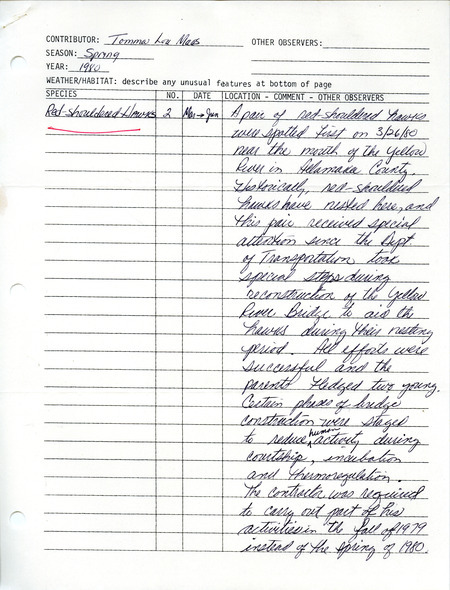 CONTRIBUTOR: Tomma Lou Maas OTHER OBSERVERS:
SEASON: Spring
YEAR: 1980
WEATHER/HABITAT: describe any unusual features at bottom of page
SPECIES NO. DATE LOCATION - COMMENT - OTHER OBSERVERS
Red-Shouldered Hawks 2 Mar→Jun A pair of red-shouldered hawks
were spotted first on 3/26/80
near the mouth of the Yellow
River in Allamakee County.
Historically, red-shouldered
hawks have nested here, and
this pair received special
attention since the Dept
of Transportation took
special steps during
reconstruction of the Yellow
River Bridge to aid the
hawks during their nesting
period. All efforts were
successful and the
parents fledged two young.
Certain phases of bridge
construction were staged
to reduce human activity during
courtship, incubation
and thermoregulation.
The contractor was required
to carry out part of his
activities in the fall of 1979
instead of the spring of 1980.